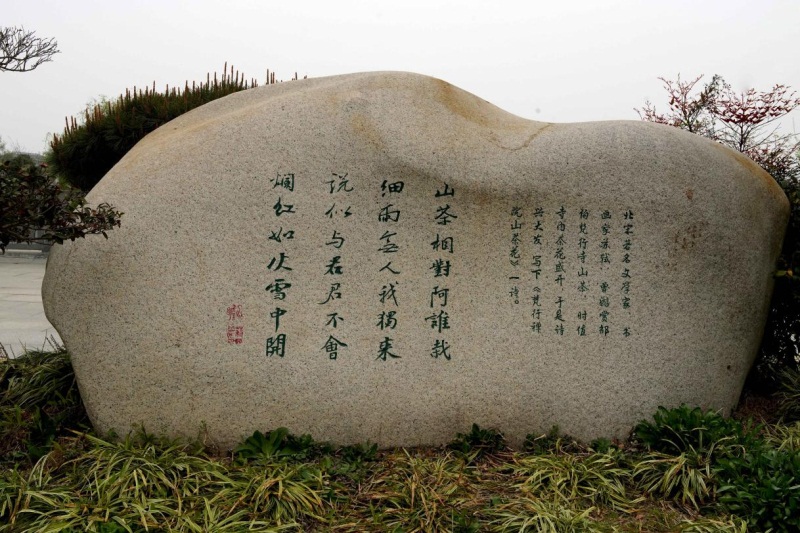 北宋著名文学家、书
画家苏轼，曾游赏邵
伯梵行寺山茶，时值
寺内茶花盛开，于是诗
兴大发，写下《梵行禅
院山茶花》一诗。
山茶相對阿誰哉
細雨無人我獨來
说似与君君不會
爛红如火雪中開